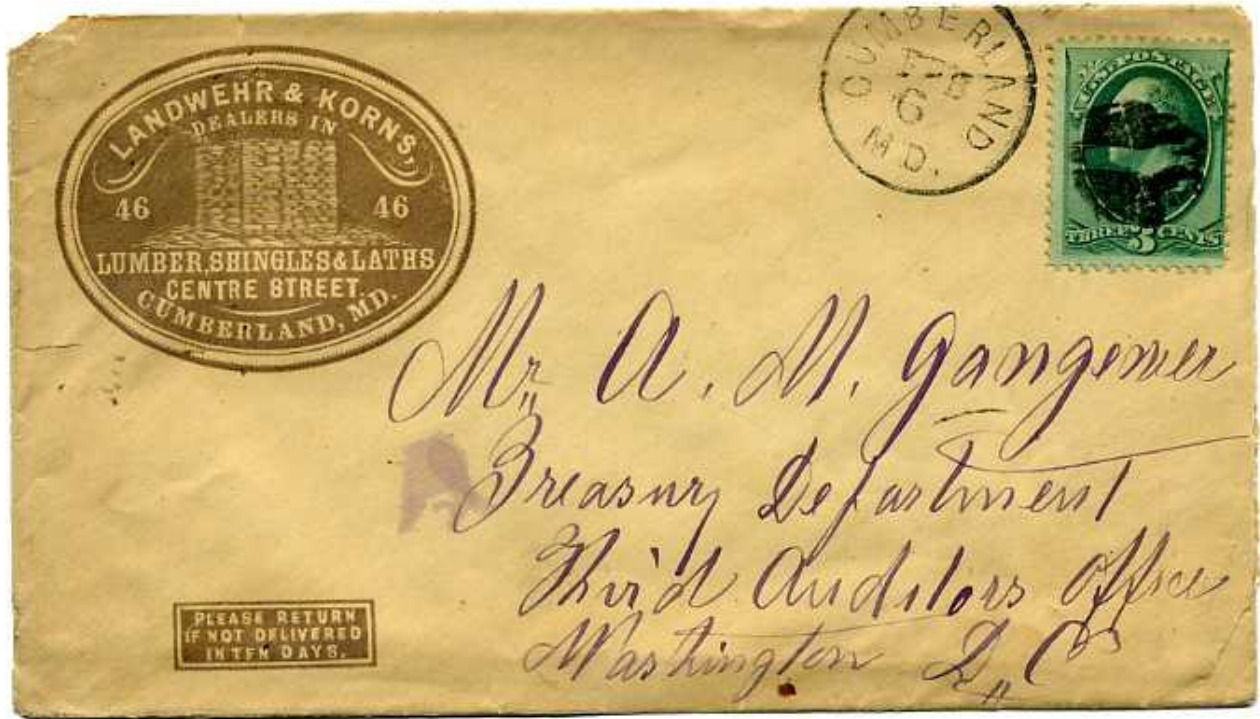 LANDWEHR & KORNS,
DEALERS IN
46 46
LUMBER, SHINGLES & LATHS
CENTRE STREET,
CUMBERLAND, MD.
CUMBERLAND
FEB
6
MD.
U.S. POSTAGE
THREE 3 CENTS
Mr. A. M. Gangewer
Treasury Department
Third Auditors Office
Washington D. C
PLEASE RETURN
IF NOT DELIVERED
IN TEN DAYS.